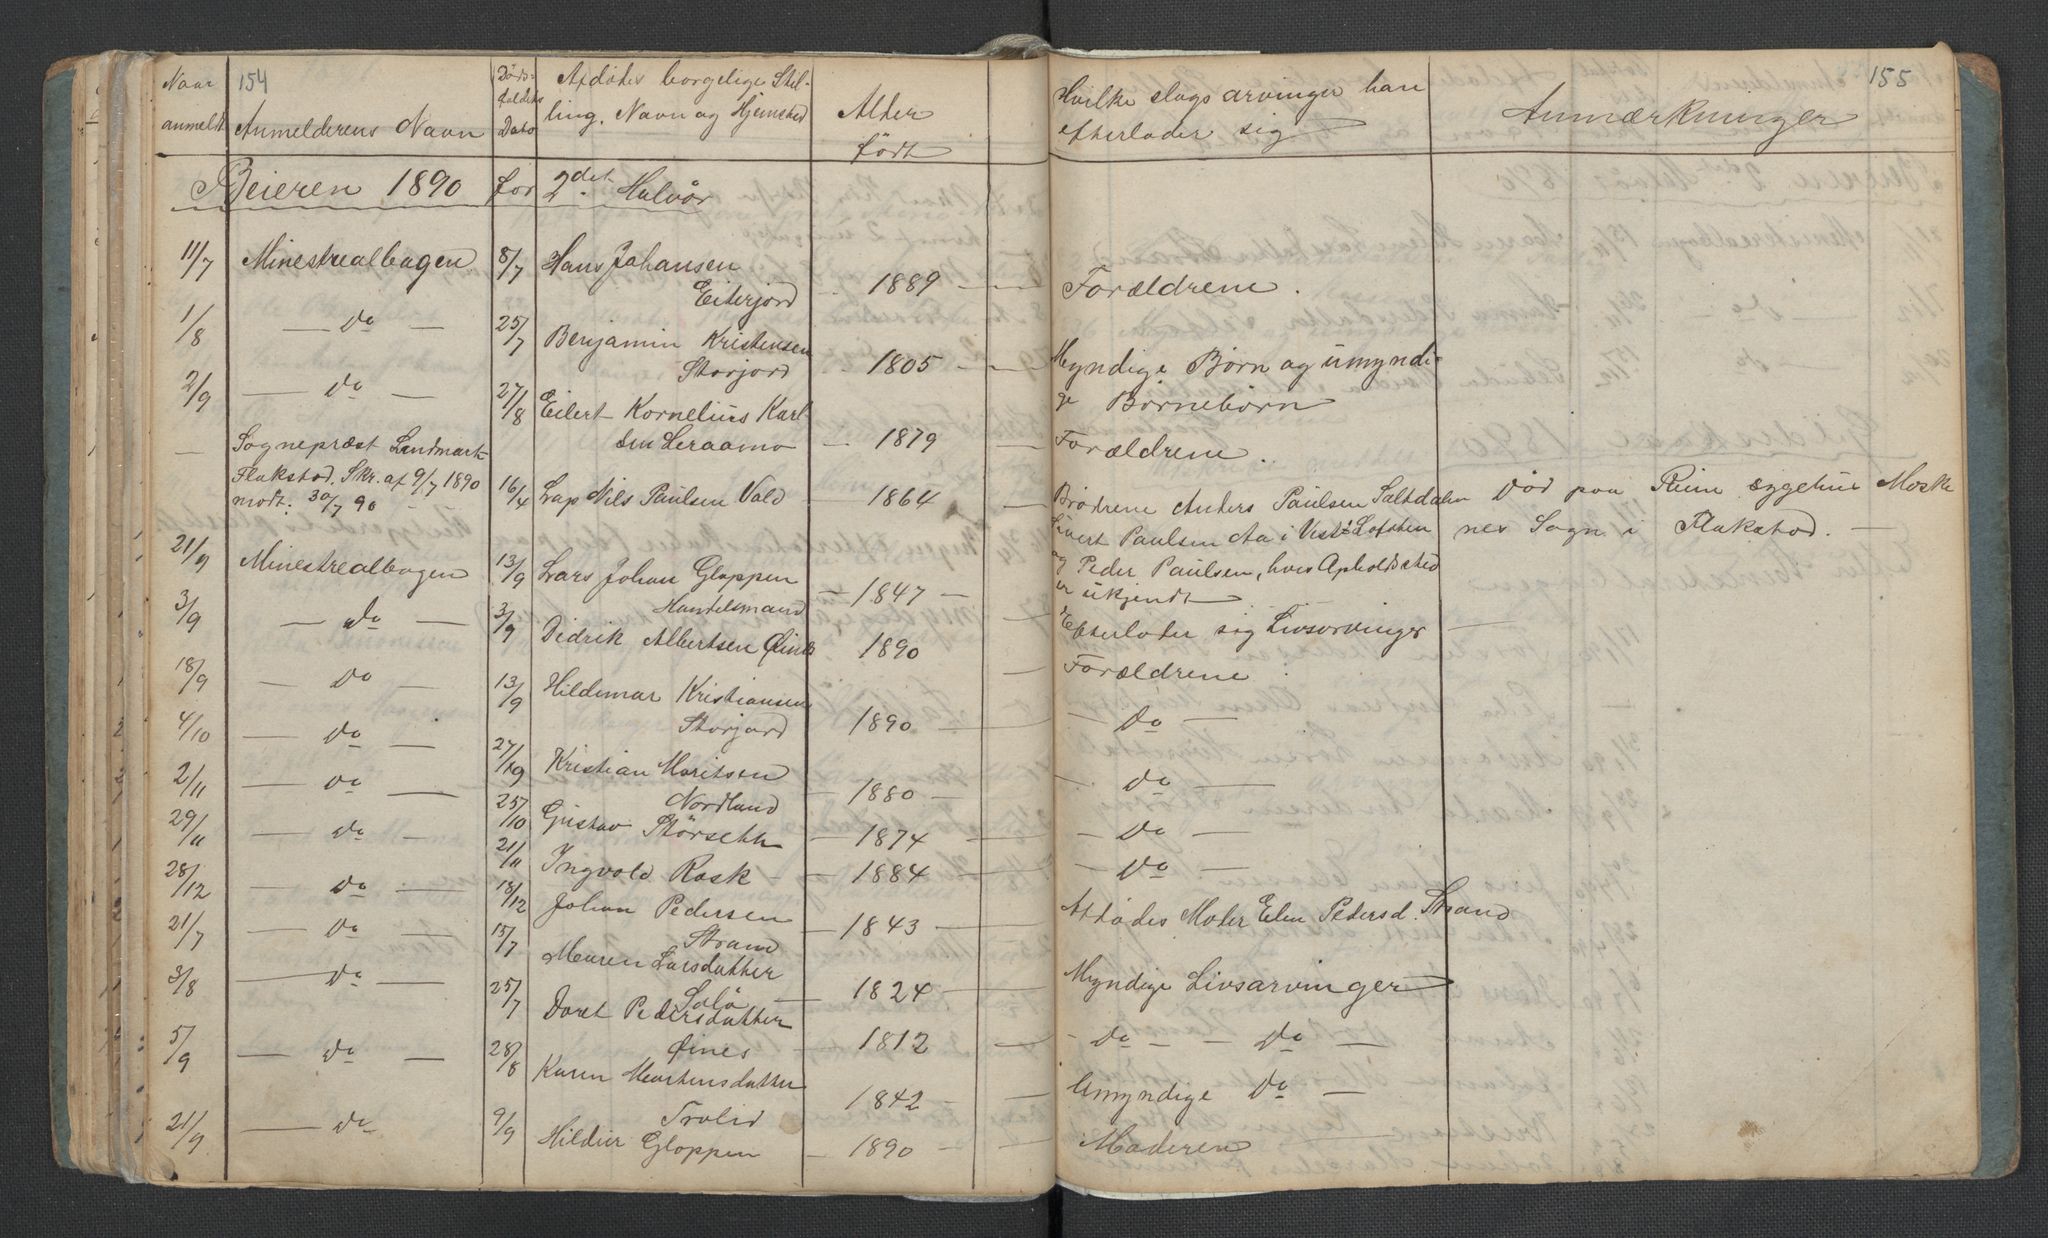 Naar anmeldt
154
Anmelderens Navn
Dødsfaldets Dato
Afdødes borgelige Stil-
ling, Navn og Hjemsted
Alder
født
Hvilke slags arvinger han
efterlader sig
Anmærkninger
155
Beieren 1890 for 2det Halvår
11/7 Minestrealbogen 8/7 Hans Johansen
Eiterjord 1889 Forældrene.
1/8 — Do — 25/7 Benjamin Kristensen
Storjord 1805 Myndige Børn og umyndi-
ge Børnebørn
2/9 — Do — 27/8 Eilert Kornelius Karl-
sen Leraamo — 1879 Forældrene.
— Sognepræst Landmark
Flakstad. Skr. af 9/7 1890
modt: 30/7 90 — 16/4 Lap Nils Paulsen Vold — 1864 — Brødrene Anders Paulsen Saltdalen
Sivert Paulsen Aa i Vest-Lofoten
og Peder Paulsen, hvis Opholdssted
er ukjendt
Død paa Reine Moske
nes Sogn i Flakstad. —
21/9 Minestrealbogen 13/9 Lars Johan Gloppen
Handelsmand — 1847 — Efterlader sig Livsarvinger —
3/9 — Do — 3/9 Didrik Albertsen Øines 1890 — Forældrene
18/9 — Do — 13/9 Hildemar Kristiansen
Storjord 1890 — — Do —
4/10 — Do — 27/9 Kristian Moritsen
Nordland — 1880 — — Do —
2/11 — Do — 25/10 Gustav Størseth — 1874 — — Do —
29/11 — Do — 21/11 Ingvold Rosk — 1884 — — Do —
28/12 — Do — 18/12 Johan Pedersen
Strand — 1843 — Afdødes Moder Elen Pedersd. Strand
21/7 — Do — 15/7 Maren Larsdatter
Solø — 1824 — Myndige Livsarvinger
3/8 — Do — 25/7 Doret Pedersdatter
Øines 1812 — — Do — — Do —
5/9 — Do — 28/8 Karen Mortensdatter
Trolid 1842 — Umyndige Do —
21/9 — Do 9/9 Hildur Gloppen — 1890 — Moderen